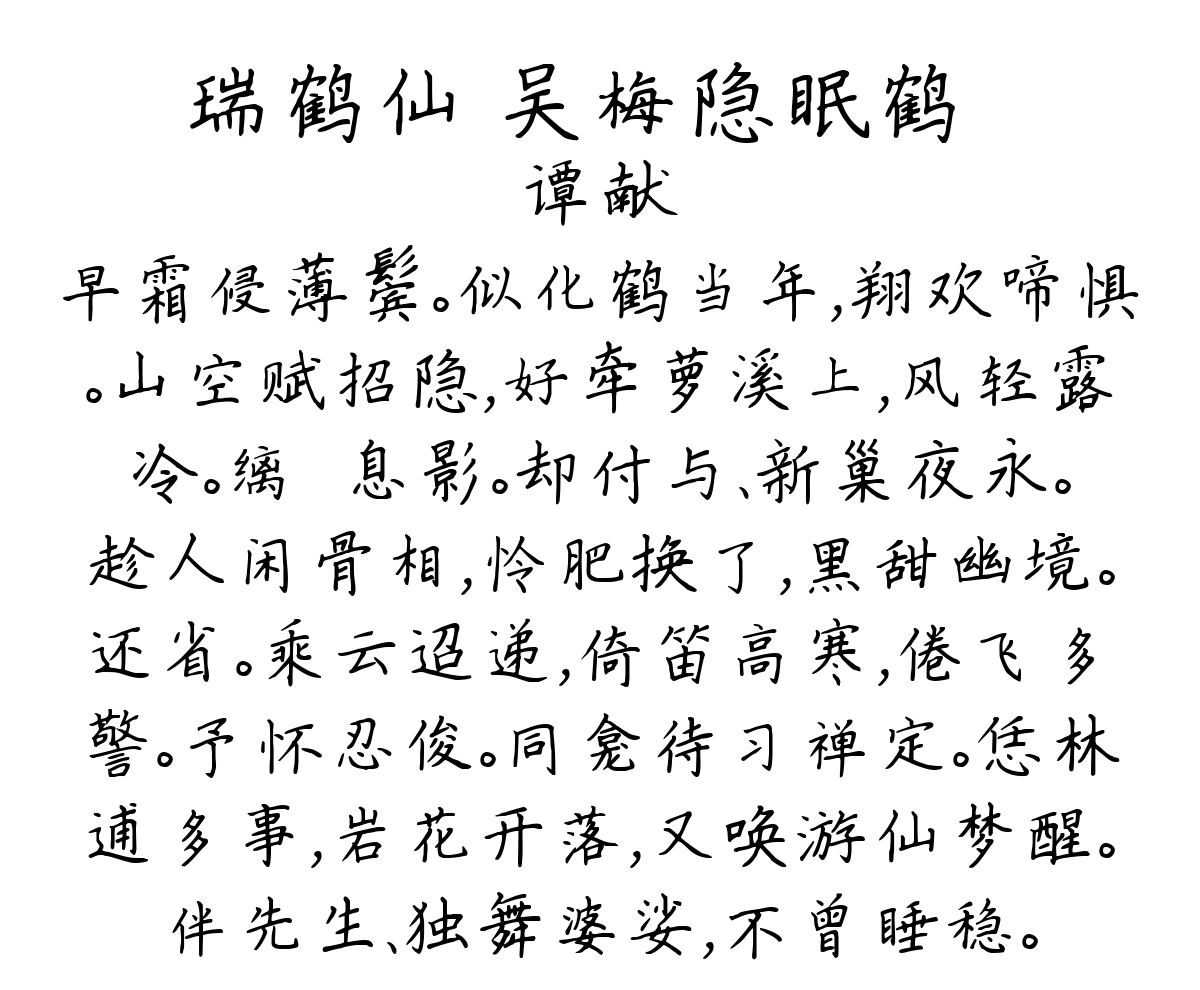 瑞鹤仙 吴梅隐眠鹤
谭献
早霜侵薄鬓。似化鹤当年,翔欢啼惧
。山空赋招隐,好牵萝溪上,风轻露
冷。缡 息影。却付与、新巢夜永。
趁人闲骨相,怜肥换了,黑甜幽境。
还省。乘云迢递,倚笛高寒,倦飞多
警。予怀忍俊。同龛待习禅定。恁林
逋多事,岩花开落,又唤游仙梦醒。
伴先生、独舞婆娑,不曾睡稳。